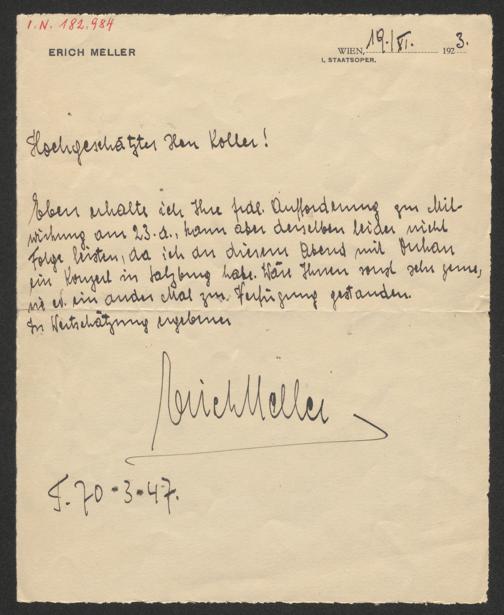 I.N. 182.984
ERICH MELLER
WIEN, 19./VI. 1923.
I., STAATSOPER.
Hochgeschätzter Herr Koller!
Eben erhalte ich Ihre frdl. Aufforderung zur Mit-
wirkung am 23. d., kann aber derselben leider nicht
Folge leisten, da ich an diesem Abend mit Duhan
ein Konzert in Salzburg habe. Wäre Ihnen sonst sehr gerne,
ein ander Mal zur Verfügung gestanden.
In Wertschätzung ergebener
Erich Meller
T. 70-3-47.